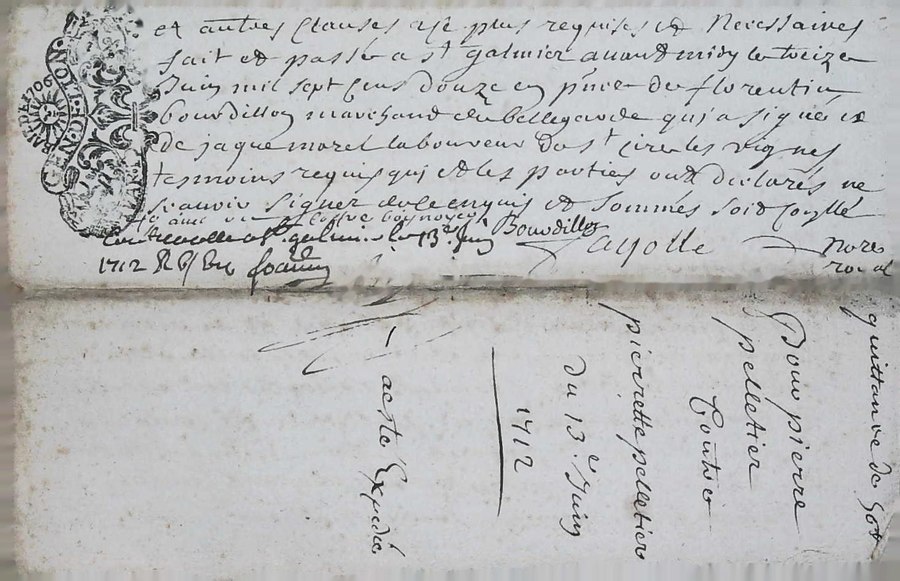 et autres Clauses
plus requises et Necessaires
fait et passé a st galmier avant midy le treize
Juin mil sept Cens douze en pñce de florentin
bourdillon marchand de bellegarde qui a signé et
de jaque morel laboureur de st Cire les vignes
tesmoins requis qui et les parties ont declarés ne
scavoir signer de ce enquis et Sommes
Bourdillon
Controollé a st galmier le 13e juin
1712
Fayolle
Nore
royal
GEN. DE LION.
1706
quittance de 50tt
Pour pierre
pelletier
Contre
pierrette pelletier
du 13e Juin
1712
acste Expedié